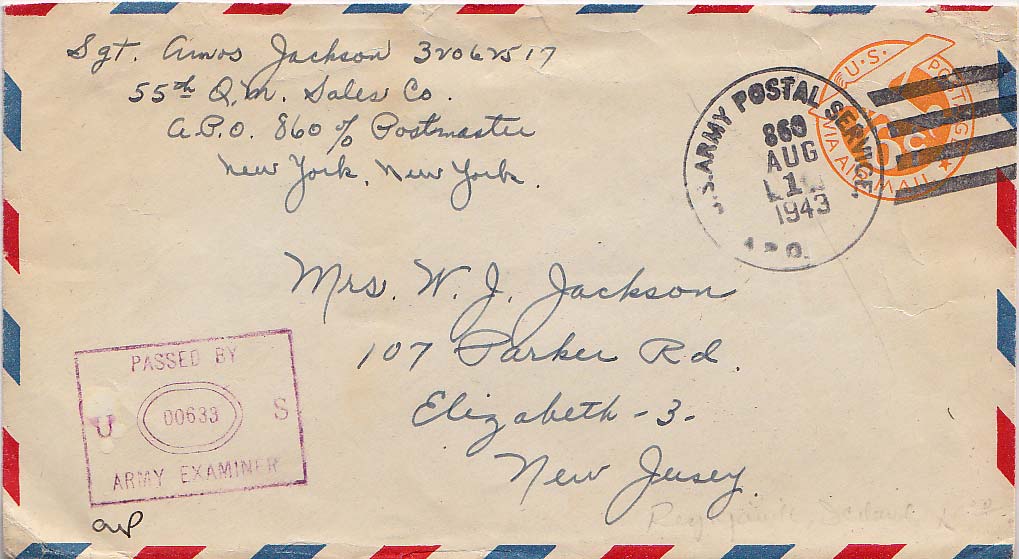 Sgt. Amos Jackson 32062517
55th Q.M. Sales Co.
A.P.O. 860 % Postmaster
New York, New York.
U.S. POSTAGE
6c
VIA AIR MAIL
U.S. ARMY POSTAL SERVICE
860
AUG
1943
A.P.O.
Mrs. W. J. Jackson
107 Parker Rd.
Elizabeth - 3 -
New Jersey
PASSED BY
U 00633 S
ARMY EXAMINER